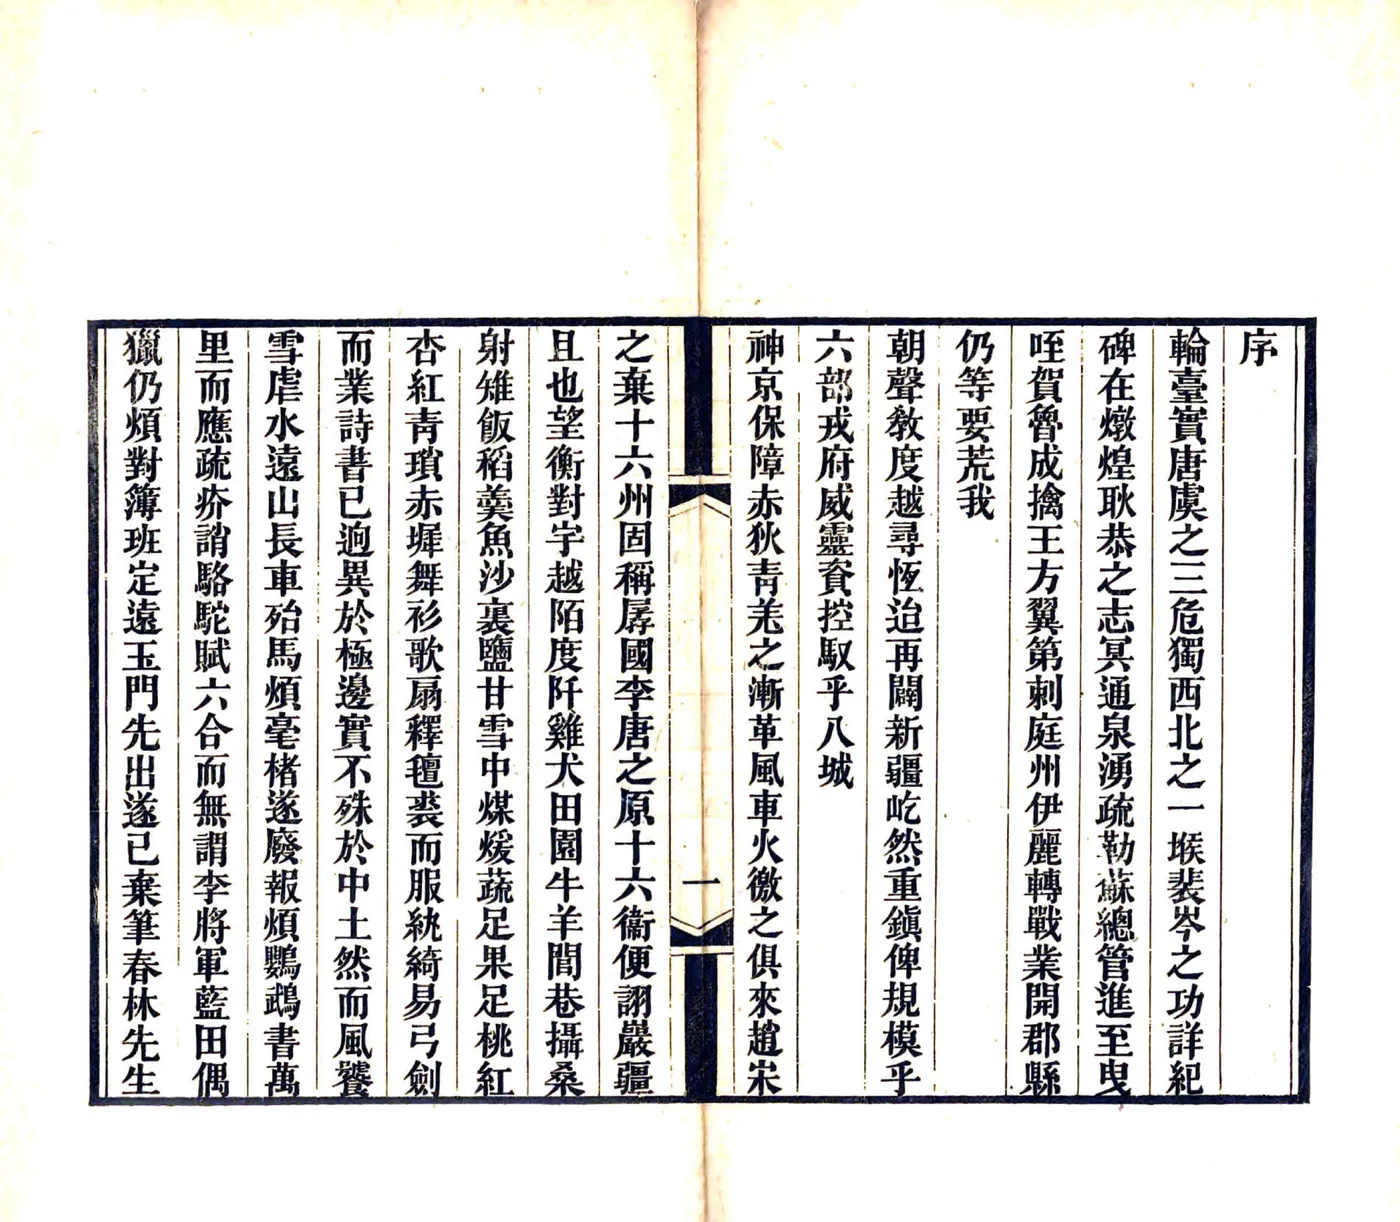 序
輪臺實唐虞之三危獨西北之一堠裴岑之功詳紀
碑在燉煌耿恭之志冥通泉湧疏勒蘇總管進至曳
咥賀魯成擒王方翼第刺庭州伊麗轉戰業開郡縣
仍等要荒我
朝聲敎度越尋恆迨再闢新疆屹然重鎭俾規模乎
六部戎府威靈資控馭乎八城
神京保障赤狄青羌之漸革風車火徼之俱來趙宋
一
之棄十六州固稱孱國李唐之原十六衞便詡巖疆
且也望衡對宇越陌度阡雞犬田園牛羊閭巷攝桑
射雉飯稻羹魚沙裏鹽甘雪中煤煖蔬足果足桃紅
杏紅青瑣赤墀舞衫歌扇釋氊裘而服紈綺易弓劍
而業詩書已逈異於極邊實不殊於中土然而風饕
雪虐水遠山長車殆馬煩毫楮遂廢報煩鸚鵡書萬
里而應疏夰誚駱駝賦六合而無謂李將軍藍田偶
獵仍煩對簿班定遠玉門先出遂已棄筆春林先生